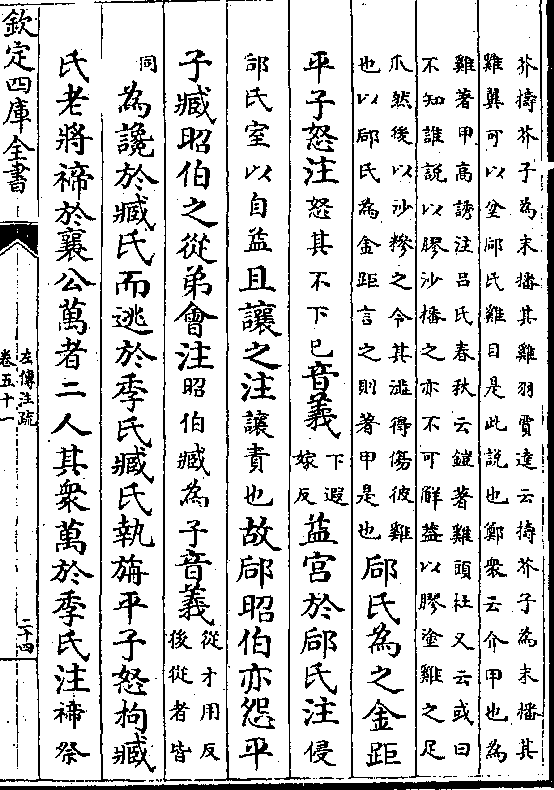 芥擣芥子為末播其雞羽賈逵云擣芥子為末播其
雞翼可以坌郈氏雞目是此說也鄭衆云介甲也為
雞著甲高誘注呂氏春秋云鎧著雞頭杜又云或曰
不知誰說以膠沙播之亦不可解葢以膠塗雞之足
爪然後以沙糝之令其澁得傷彼雞
也以郈氏為金距言之則著甲是也
郈氏為之金距
平子怒注怒其不下已音義
下遐
嫁反
益宮於郈氏注侵
郈氏室以自益且讓之注讓責也故郈昭伯亦怨平
子臧昭伯之從弟會注昭伯臧為子音義
從才用反
後從者皆
同
為讒於臧氏而逃於季氏臧氏執旃平子怒拘臧
氏老將禘於襄公萬者二人其衆萬於季氏注禘祭
欽定四庫全書
左傳注疏
卷五十一
二十四